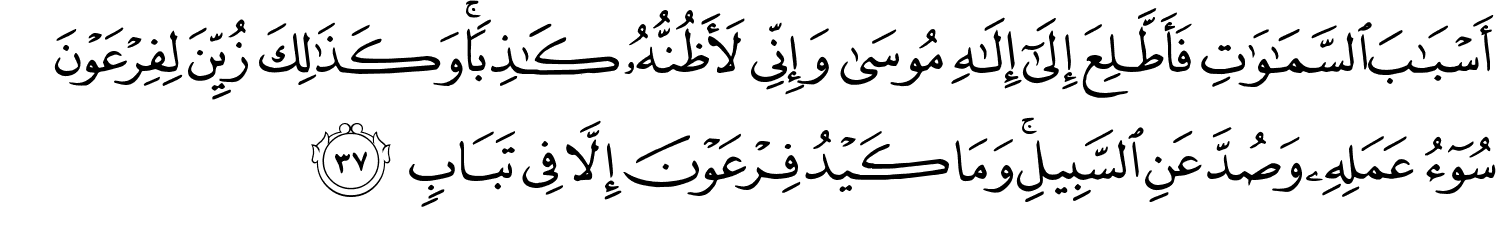 أَسۡبَٰبَ ٱلسَّمَٰوَٰتِ فَأَطَّلِعَ إِلَىٰٓ إِلَٰهِ مُوسَىٰ وَإِنِّي لَأَظُنُّهُۥ كَٰذِبٗاۚ وَكَذَٰلِكَ زُيِّنَ لِفِرۡعَوۡنَ
سُوٓءُ عَمَلِهِۦ وَصُدَّ عَنِ ٱلسَّبِيلِۚ وَمَا كَيۡدُ فِرۡعَوۡنَ إِلَّا فِي تَبَابٖ ٣٧